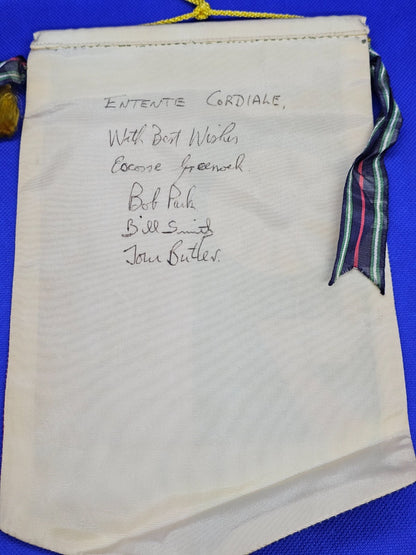 ENTENTE CORDIALE,
With Best Wishes
Ecosse Greenock.
Bob Park
Bill Smith
Tom Butler.